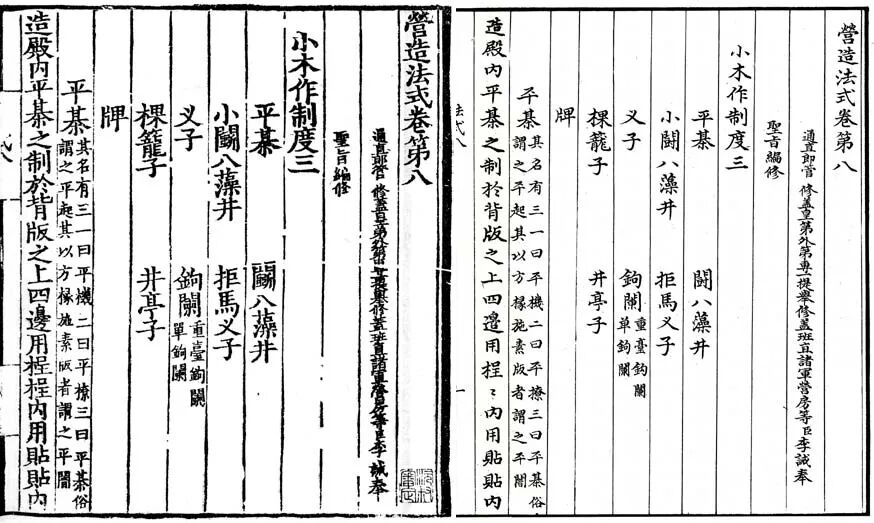 營造法式卷第八
通直郎管修蓋皇弟外第專一提舉修蓋班直諸軍營房等臣李誡奉
聖旨編修
小木作制度三
平棊 鬭八藻井
小鬭八藻井 拒馬义子
义子 鉤闌 重臺鉤闌
單鉤闌
棵籠子 井亭子
牌
平棊 其名有三一曰平機二曰平橑三曰平棊俗
謂之平起其以方椽施素版者謂之平闇
造殿内平棊之制於背版之上四邊用桯〻内用貼貼内
法式八 一
營造法式卷第八
通直郎管修蓋皇弟外第專一提舉修蓋班直諸軍營房等臣李誡奉
聖旨編修
小木作制度三
平棊 鬭八藻井
小鬭八藻井 拒馬义子
义子 鉤闌 重臺鉤闌
單鉤闌
棵籠子 井亭子
牌
平棊 其名有三一曰平機二曰平橑三曰平棊俗
謂之平起其以方椽施素版者謂之平闇
造殿内平棊之制於背版之上四邊用桯桯内用貼貼内
式八